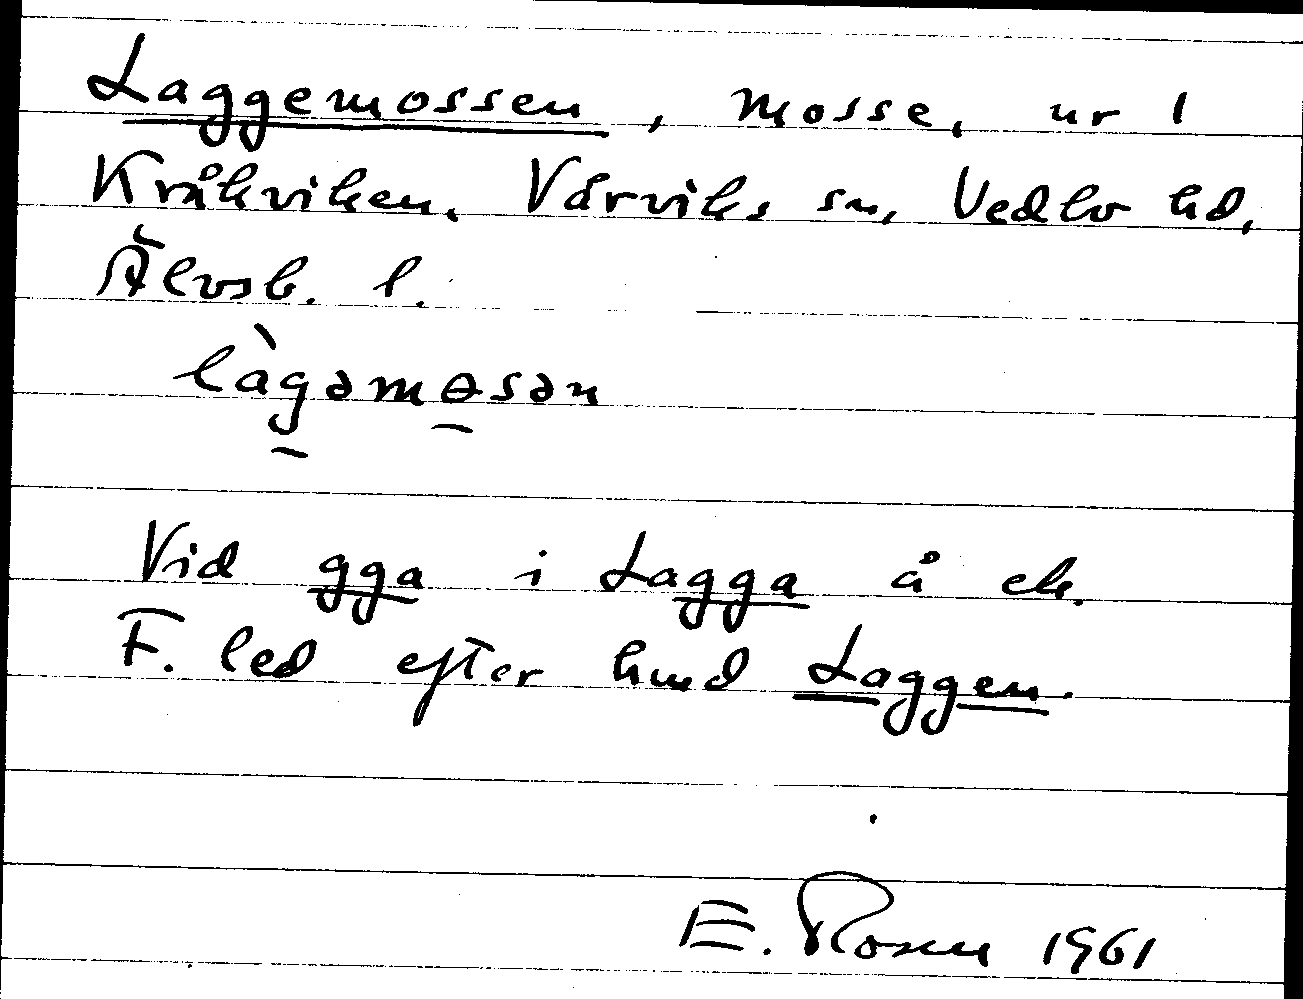 Laggemossen, mosse, nr 1
Kråkviken. Vårviks sn, Vedbo hd,
Älvsb. l.
làgəmɵsən
Vid gga i Lagga å ek.
F. led efter hund Laggen.
E. Rosen 1961